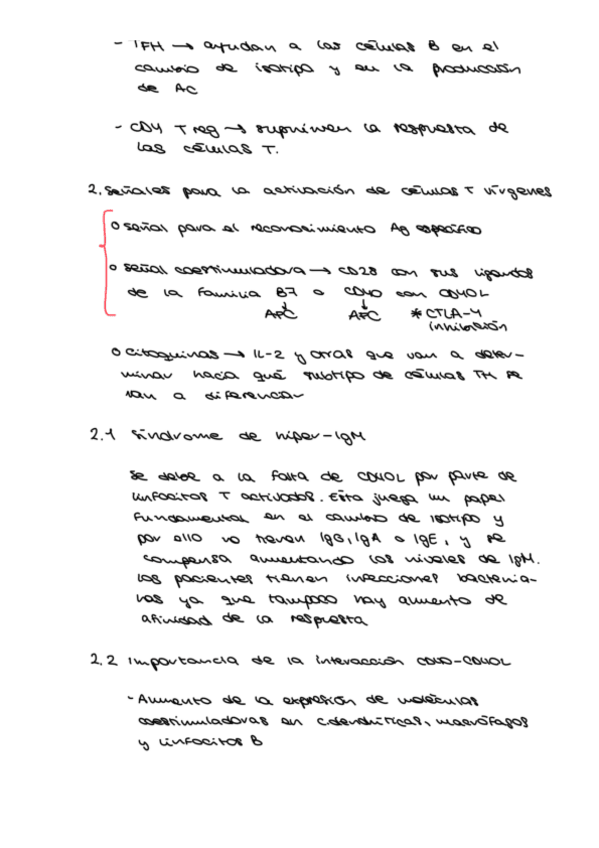 - TFH → ayudan a las células B en el
cambio de isotipo y en la producción
de AC
- CD4 T reg → suprimen la respuesta de
las células T.
2. Señales para la activación de células T vírgenes
o señal para el reconocimiento Ag específico
o señal coestimuladora → CD28 con sus ligandos
de la familia B7 o CD40 con CD40L
APC APC * CTLA-4
inhibición
o citoquinas → IL-2 y otras que van a deter-
minar hacia qué subtipo de células TH se
van a diferenciar
2.1 Síndrome de hiper-IgM
Se debe a la falta de CD40L por parte de
linfocitos T activados. Esta juega un papel
fundamental en el cambio de isotipo y
por ello no tienen IgG, IgA o IgE, y se
compensa aumentando los niveles de IgM.
Los pacientes tienen infecciones bacteria-
nas ya que tampoco hay aumento de
afinidad de la respuesta
2.2 Importancia de la interacción CD40-CD40L
- Aumento de la expresión de moléculas
coestimuladoras en c.dendríticas, macrófagos
y linfocitos B